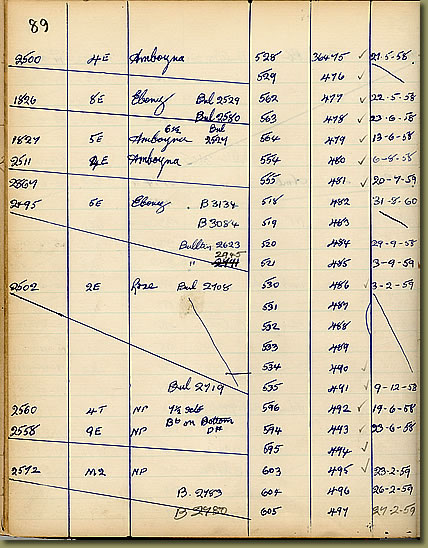 89
2500 4E Amboyna 528 36475 ✓ 21.5.58
529 476 ✓
1826 8E Ebony Bul 2529 562 477 ✓ 22.5.58
Bul 2580 563 478 ✓ 23.6.58
1827 5E Amboyna Bul 2527 564 479 ✓ 13-6-58
2511 4E Amboyna 554 480 ✓ 6-8-58
2867 555 481 ✓ 20-7-59
2495 5E Ebony B 3134 518 482 31-8-60
B 3084 519 483
Bullen 2623 520 484 29-9-58
2945
" 521 485 3-9-59
2502 2E Roze Bul 2708 530 486 ✓ 3-2-59
531 487
532 488
533 489
534 490 ✓
Bul 2719 535 491 ✓ 9-12-58
2560 4T NP 596 492 ✓ 19-6-58
2558 9E NP Bb on Bottom 594 493 ✓ 23-6-58
595 494 ✓
2572 M2 NP 603 495 ✓ 23-2-59
B. 2783 604 496 26-2-59
B 2780 605 497 27-2-59